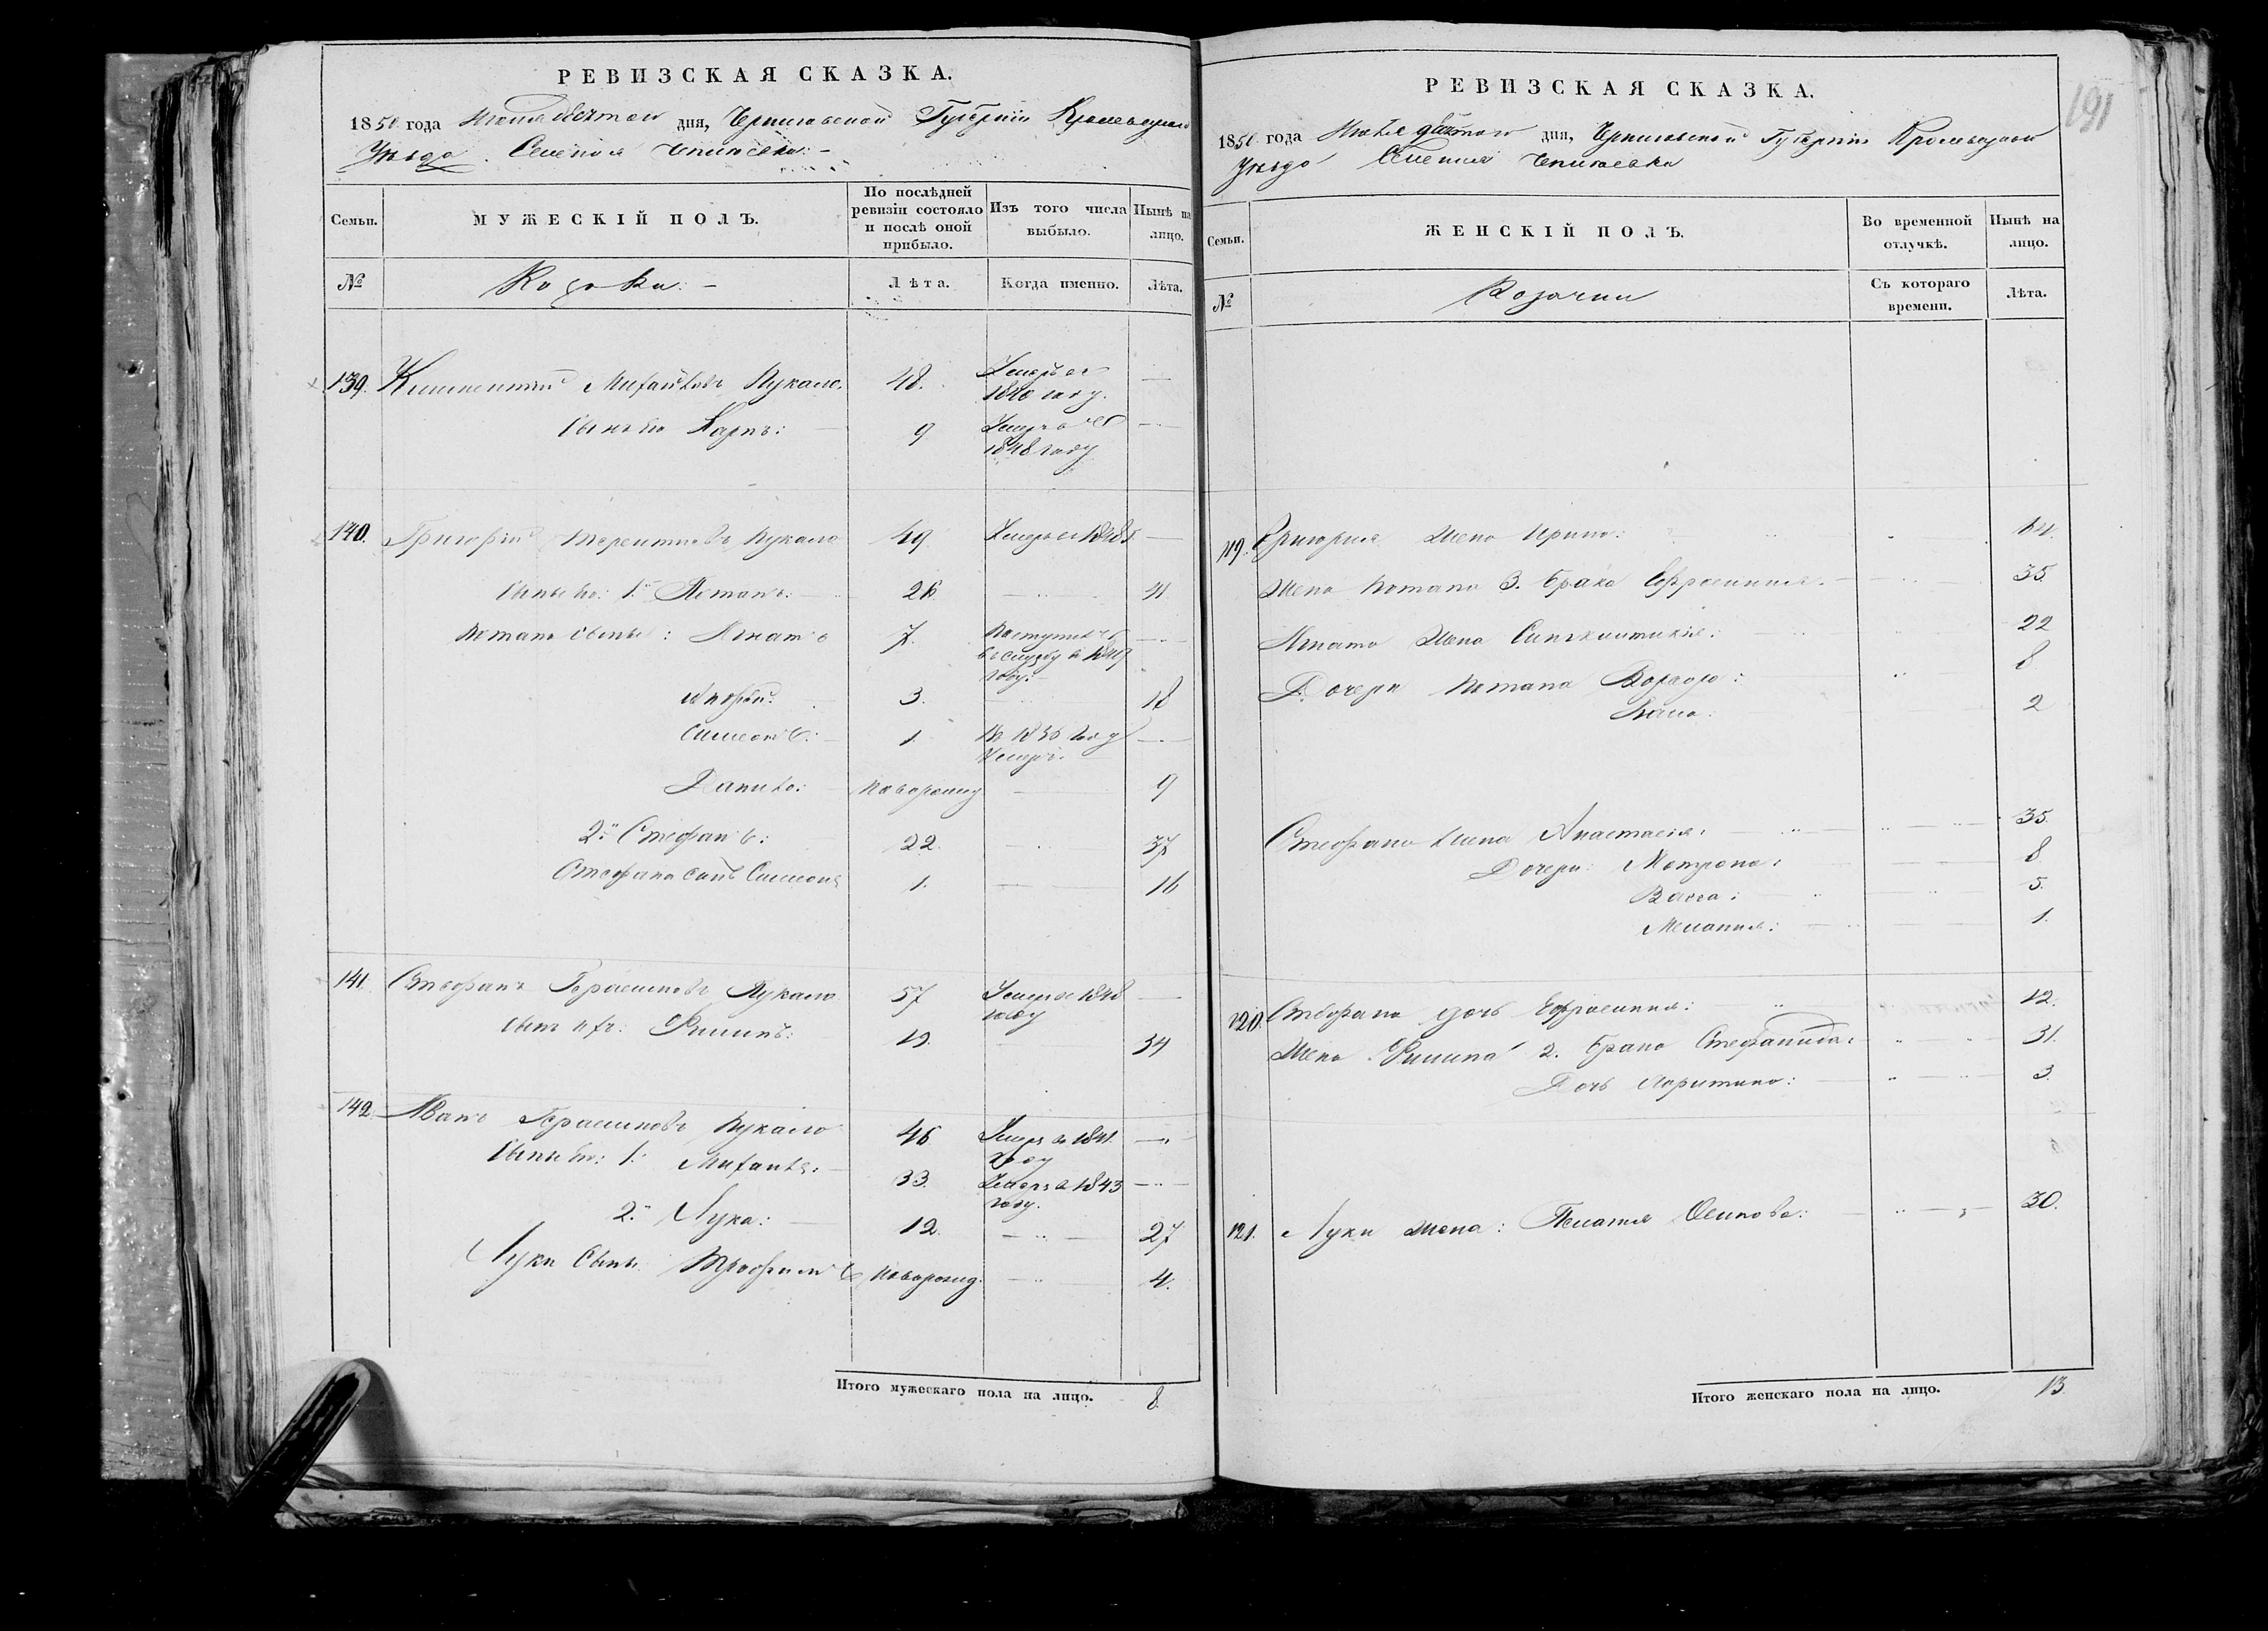 РЕВИЗСКАЯ СКАЗКА.
1850 года дня, Черниговской Губерніи Кролевецкаго
Уѣзда. Селенія
Семьи.
МУЖЕСКІЙ ПОЛЪ.
По послѣдней ревизіи состояло и послѣ оной прибыло.
Изъ того числа выбыло.
Нынѣ на лицо.
№
Козаки:
Лѣта.
Когда именно.
Лѣта.
139. Михайловъ 48. Умеръ въ —
1840 году.
Сынъ его Карпъ: 9 Умеръ въ —
1848 году
140. Григорій Терентіевъ 49 Умеръ въ 1848 —
Сыны его: 1й Потапъ: 26 — 41
Потапа сыны: Игнатъ 7. Поступилъ —
въ службу въ 1849
году.
Андрей: 3. — 18
Симеонъ: 1. Въ 1836 году —
Умеръ.
Данило: новорожд — 9
2й Стефанъ: 22 — 37
Стефана сынъ Симеонъ 1. — 16
141 Стефанъ Герасимовъ 57 Умеръ въ 1848 —
году
Сынъ его: Филипъ: 19. — 34
142 Иванъ Герасимовъ 46 Умеръ въ 1841 —
году
Сыны его: 1й Михайло: 33. Умеръ въ 1843 —
году.
2й Лука: 12. — 27
Луки Сынъ Трофимъ новорожд. — 4.
Итого мужескаго пола на лицо. 8.
191
РЕВИЗСКАЯ СКАЗКА.
1850 года дня, Черниговской Губерніи Кролевецкаго
Уѣзда Селенія
Семьи.
ЖЕНСКІЙ ПОЛЪ.
Во временной отлучкѣ.
Нынѣ на лицо.
№
Козачки
Съ котораго времени.
Лѣта.
119. Григорія жена Ирина: 64.
Жена Потапа 3. брака Ефросинія. 35
Игната жена Синклитикія: 22
Дочери Потапа 8
2
Стефана жена Анастасія: 35.
Дочери: Матрона: 8
Васса: 5.
Меланія: 1.
120. Стефана дочь Ефросинія: 12.
Жена Филипа 2. брака Стефанида: 31.
Дочь Харитина: 3
121. Луки жена: Пелагія Осипова: 30.
Итого женскаго пола на лицо. 13